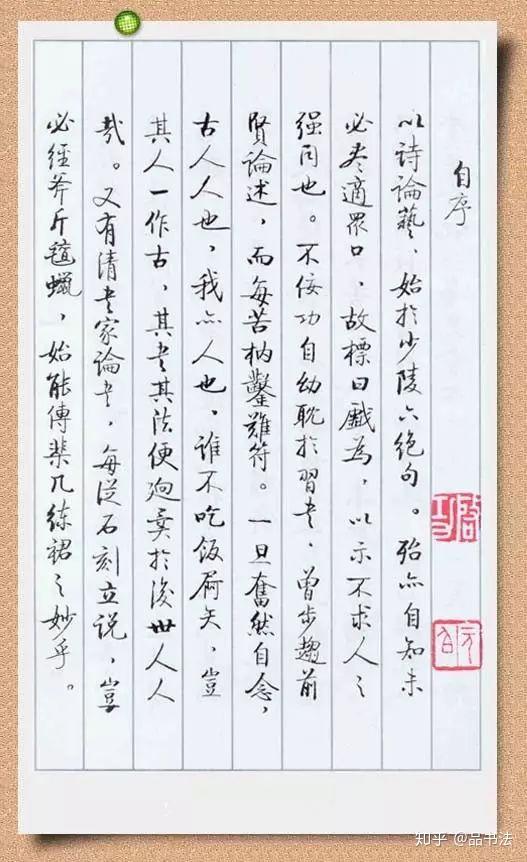 自序
以詩論藝，始於少陵六絕句。殆亦自知未
必盡適眾口，故標曰戲為，以示不求人之
强同也。不佞功自幼耽於習書，曾步趨前
賢論述，而每苦枘鑿難符。一旦奮然自念，
古人人也，我亦人也，誰不吃飯屙矢，豈
其人一作古，其書其法便迥異於後世人人
哉。又有清書家論書，每從石刻立説，豈
必經斧斤氊蠟，始能傳棐几練裙之妙乎。
啟功
元白
知乎 @品书法